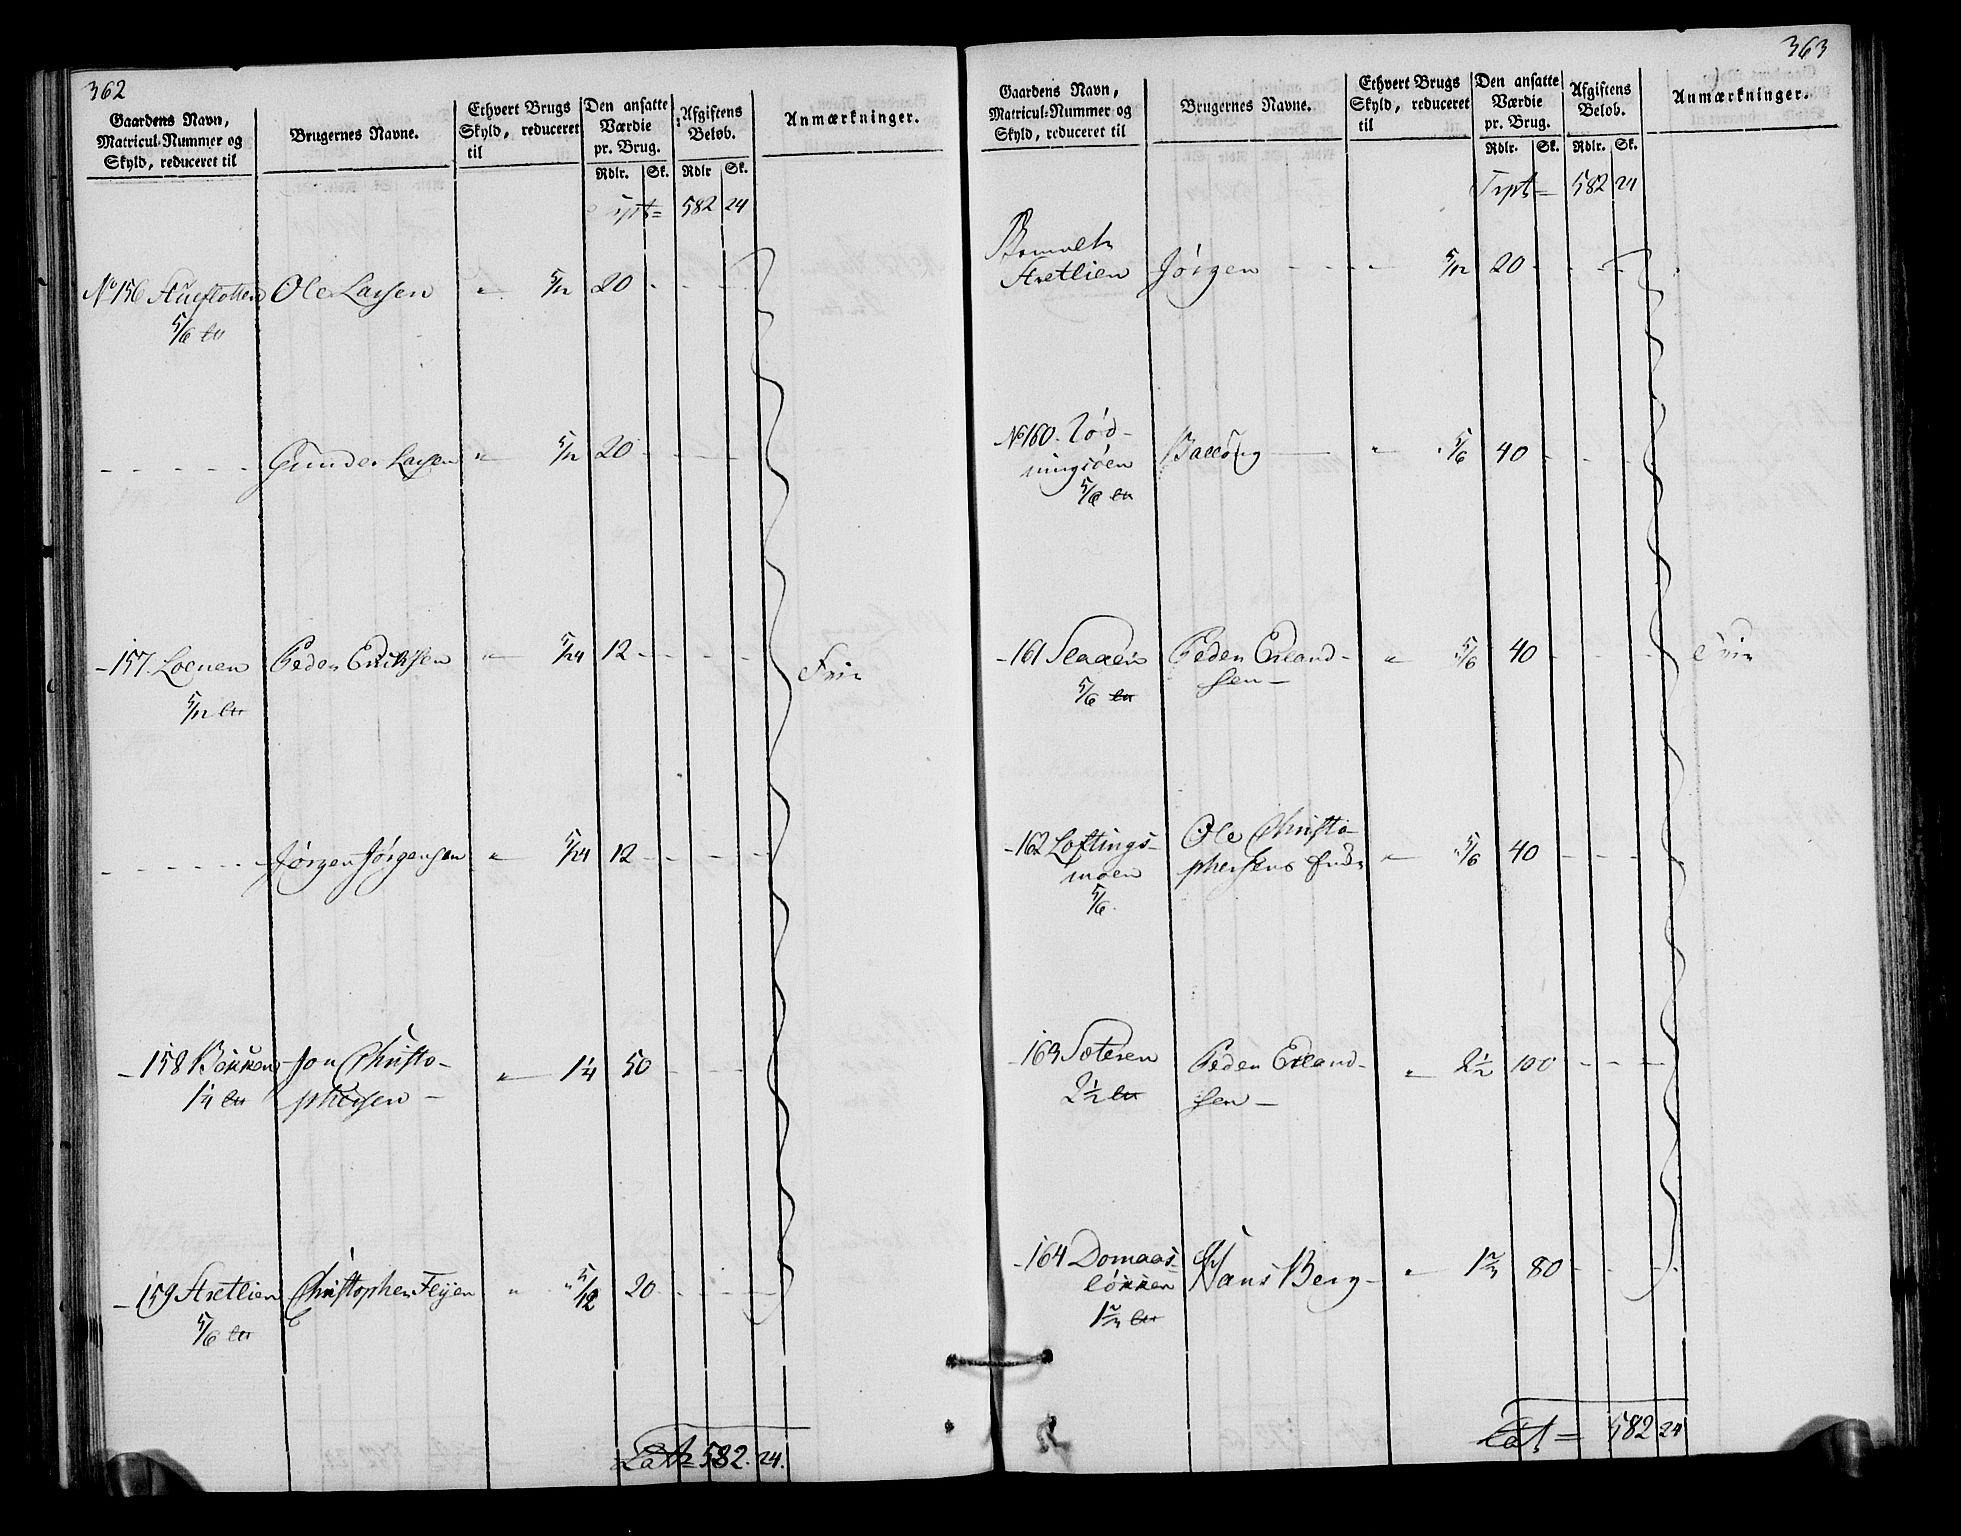 362
Gaardens Navn,
Matricul-Nummer og
Skyld, reduceret til
Brugernes Navne.
Ethvert Brugs
Skyld, reduceret
til
Den ansatte
Værdie
pr. Brug.
Rdlr. Sk.
Afgiftens
Beløb.
Rdlr Sk.
Anmærkninger.
Trpt= 582 24
No 156 Ole Larsen " 5/12 20 - - -
5/6
- - - - - Gunder Larsen " 5/12 20 - - - -
- 157. Loenen Peder Eriksen " 5/24 12 - - - - Frie
5/12
- - - - - Jørgen Jørgensen " 5/24 12 - - - -
- 158 Bækken Jon Christo-
1 1/4 phersen - " 1 1/4 50 - - -
- 159 Stretlien Christopher " 5/12 20 - - - -
5/6
Lat= 582. 24.
363
Gaardens Navn,
Matricul-Nummer og
Skyld, reduceret til
Brugernes Navne.
Ethvert Brugs
Skyld, reduceret
til
Den ansatte
Værdie
pr. Brug.
Rdlr. Sk.
Afgiftens
Beløb.
Rdlr. Sk.
Anmærkninger.
Trpt= 582 24
Stretlien Jørgen - - - 5/12 20 - - - -
No 160.
5/6 " 5/6 40 - - -
- 161 Peder Erland-
5/6 sen - " 5/6 40 - - - - Frie
- 162 Loftings- Ole Christo-
moen phersens " 5/6 40 - - - -
5/6.
- 163 Sæteren Peder Erland-
2 1/2 sen - " 2 1/2 100 - - - -
- 164 Domaas-
løkken Hans Berg - " 1 2/3 80 - - - -
1 2/3
Lat= 582 24